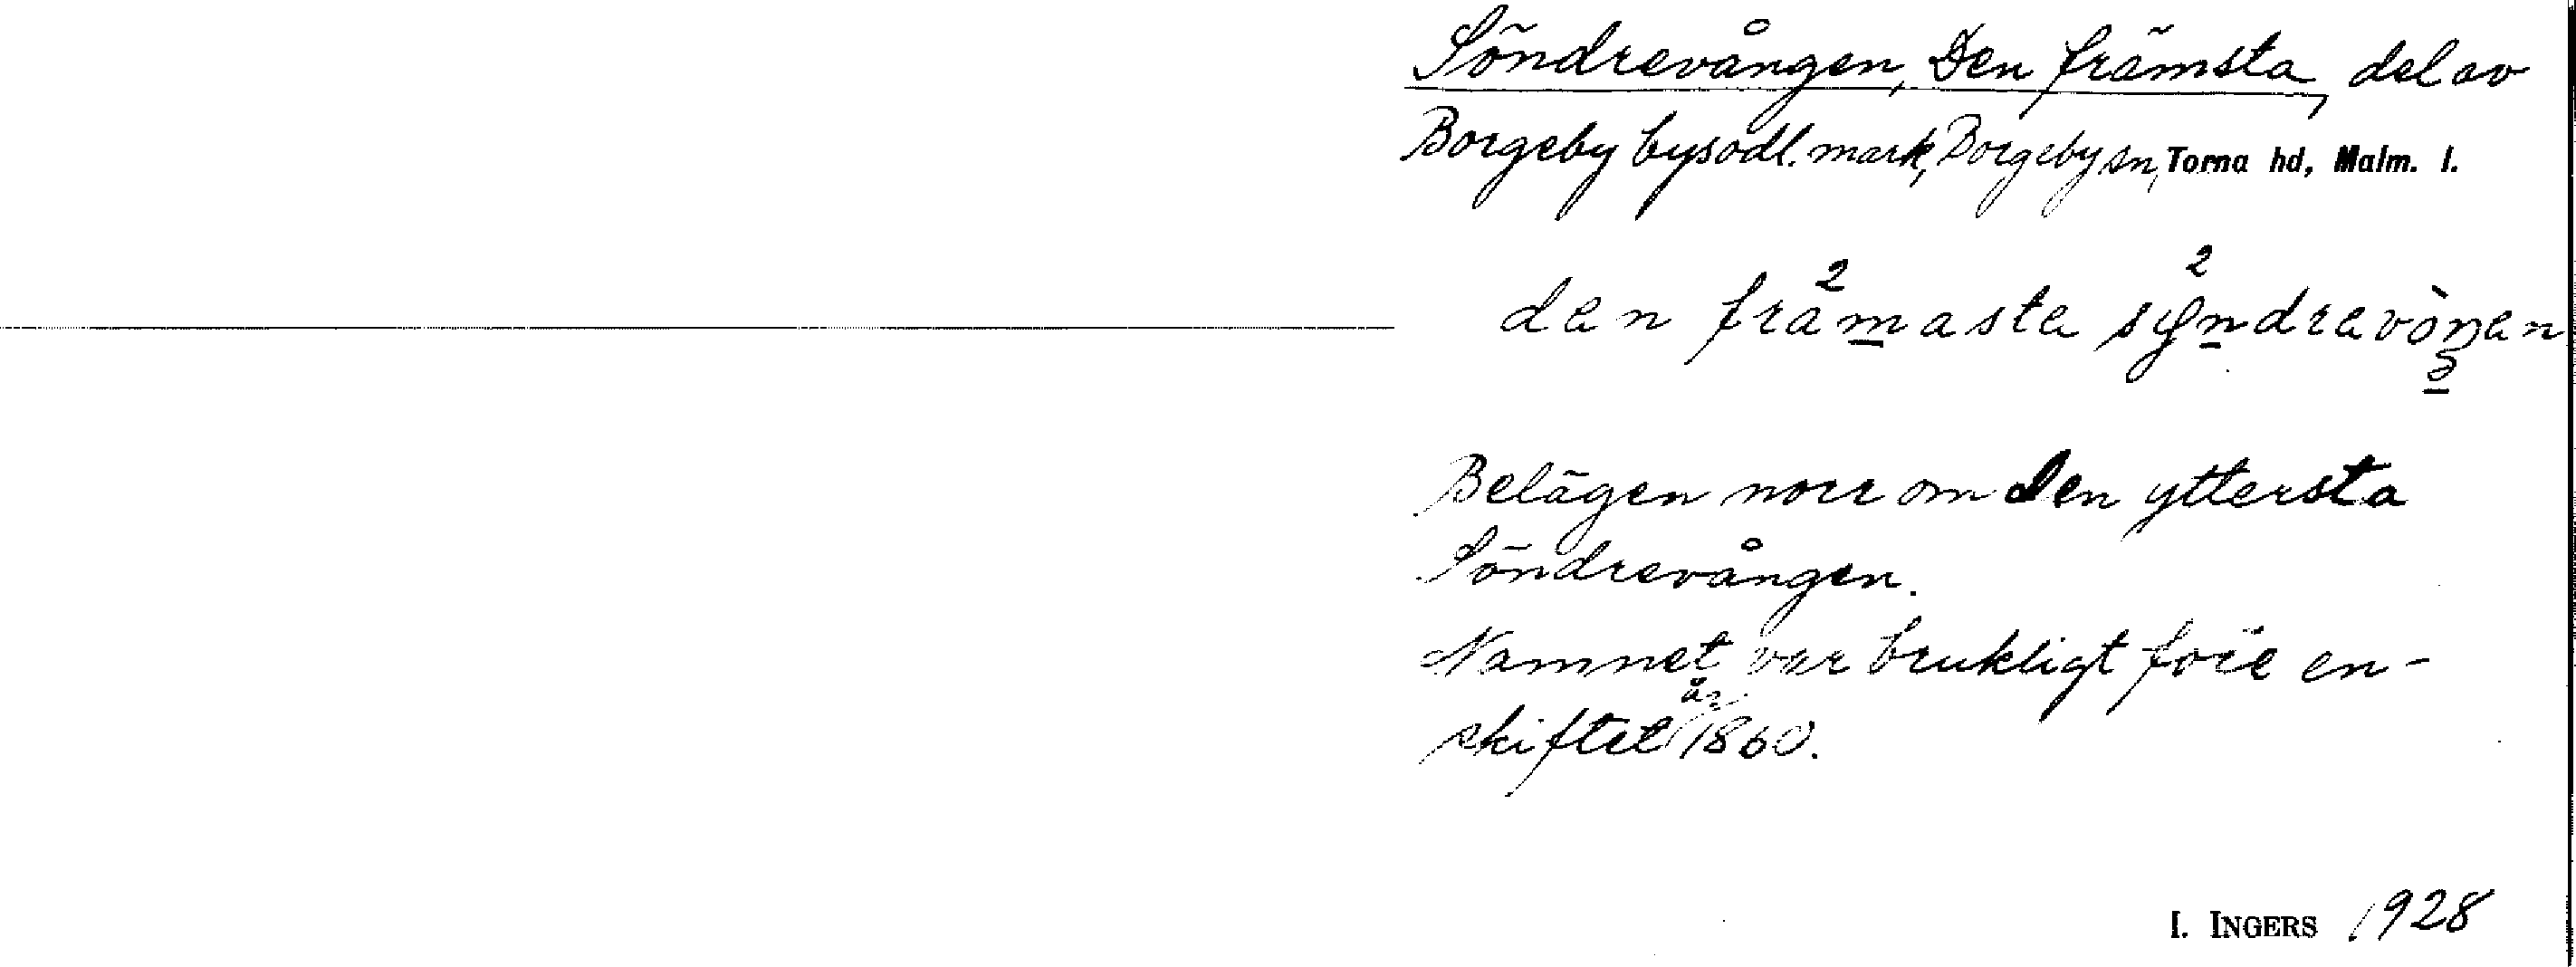 Söndrevången, Den främsta, del av
Borgeby bys odl. mark, Borgeby sn, Torna hd, Malm. l.
Belägen norr om Den yttersta
Söndrevången.
Namnet var brukligt före en-
skiftet år 1860.
I. INGERS 1928